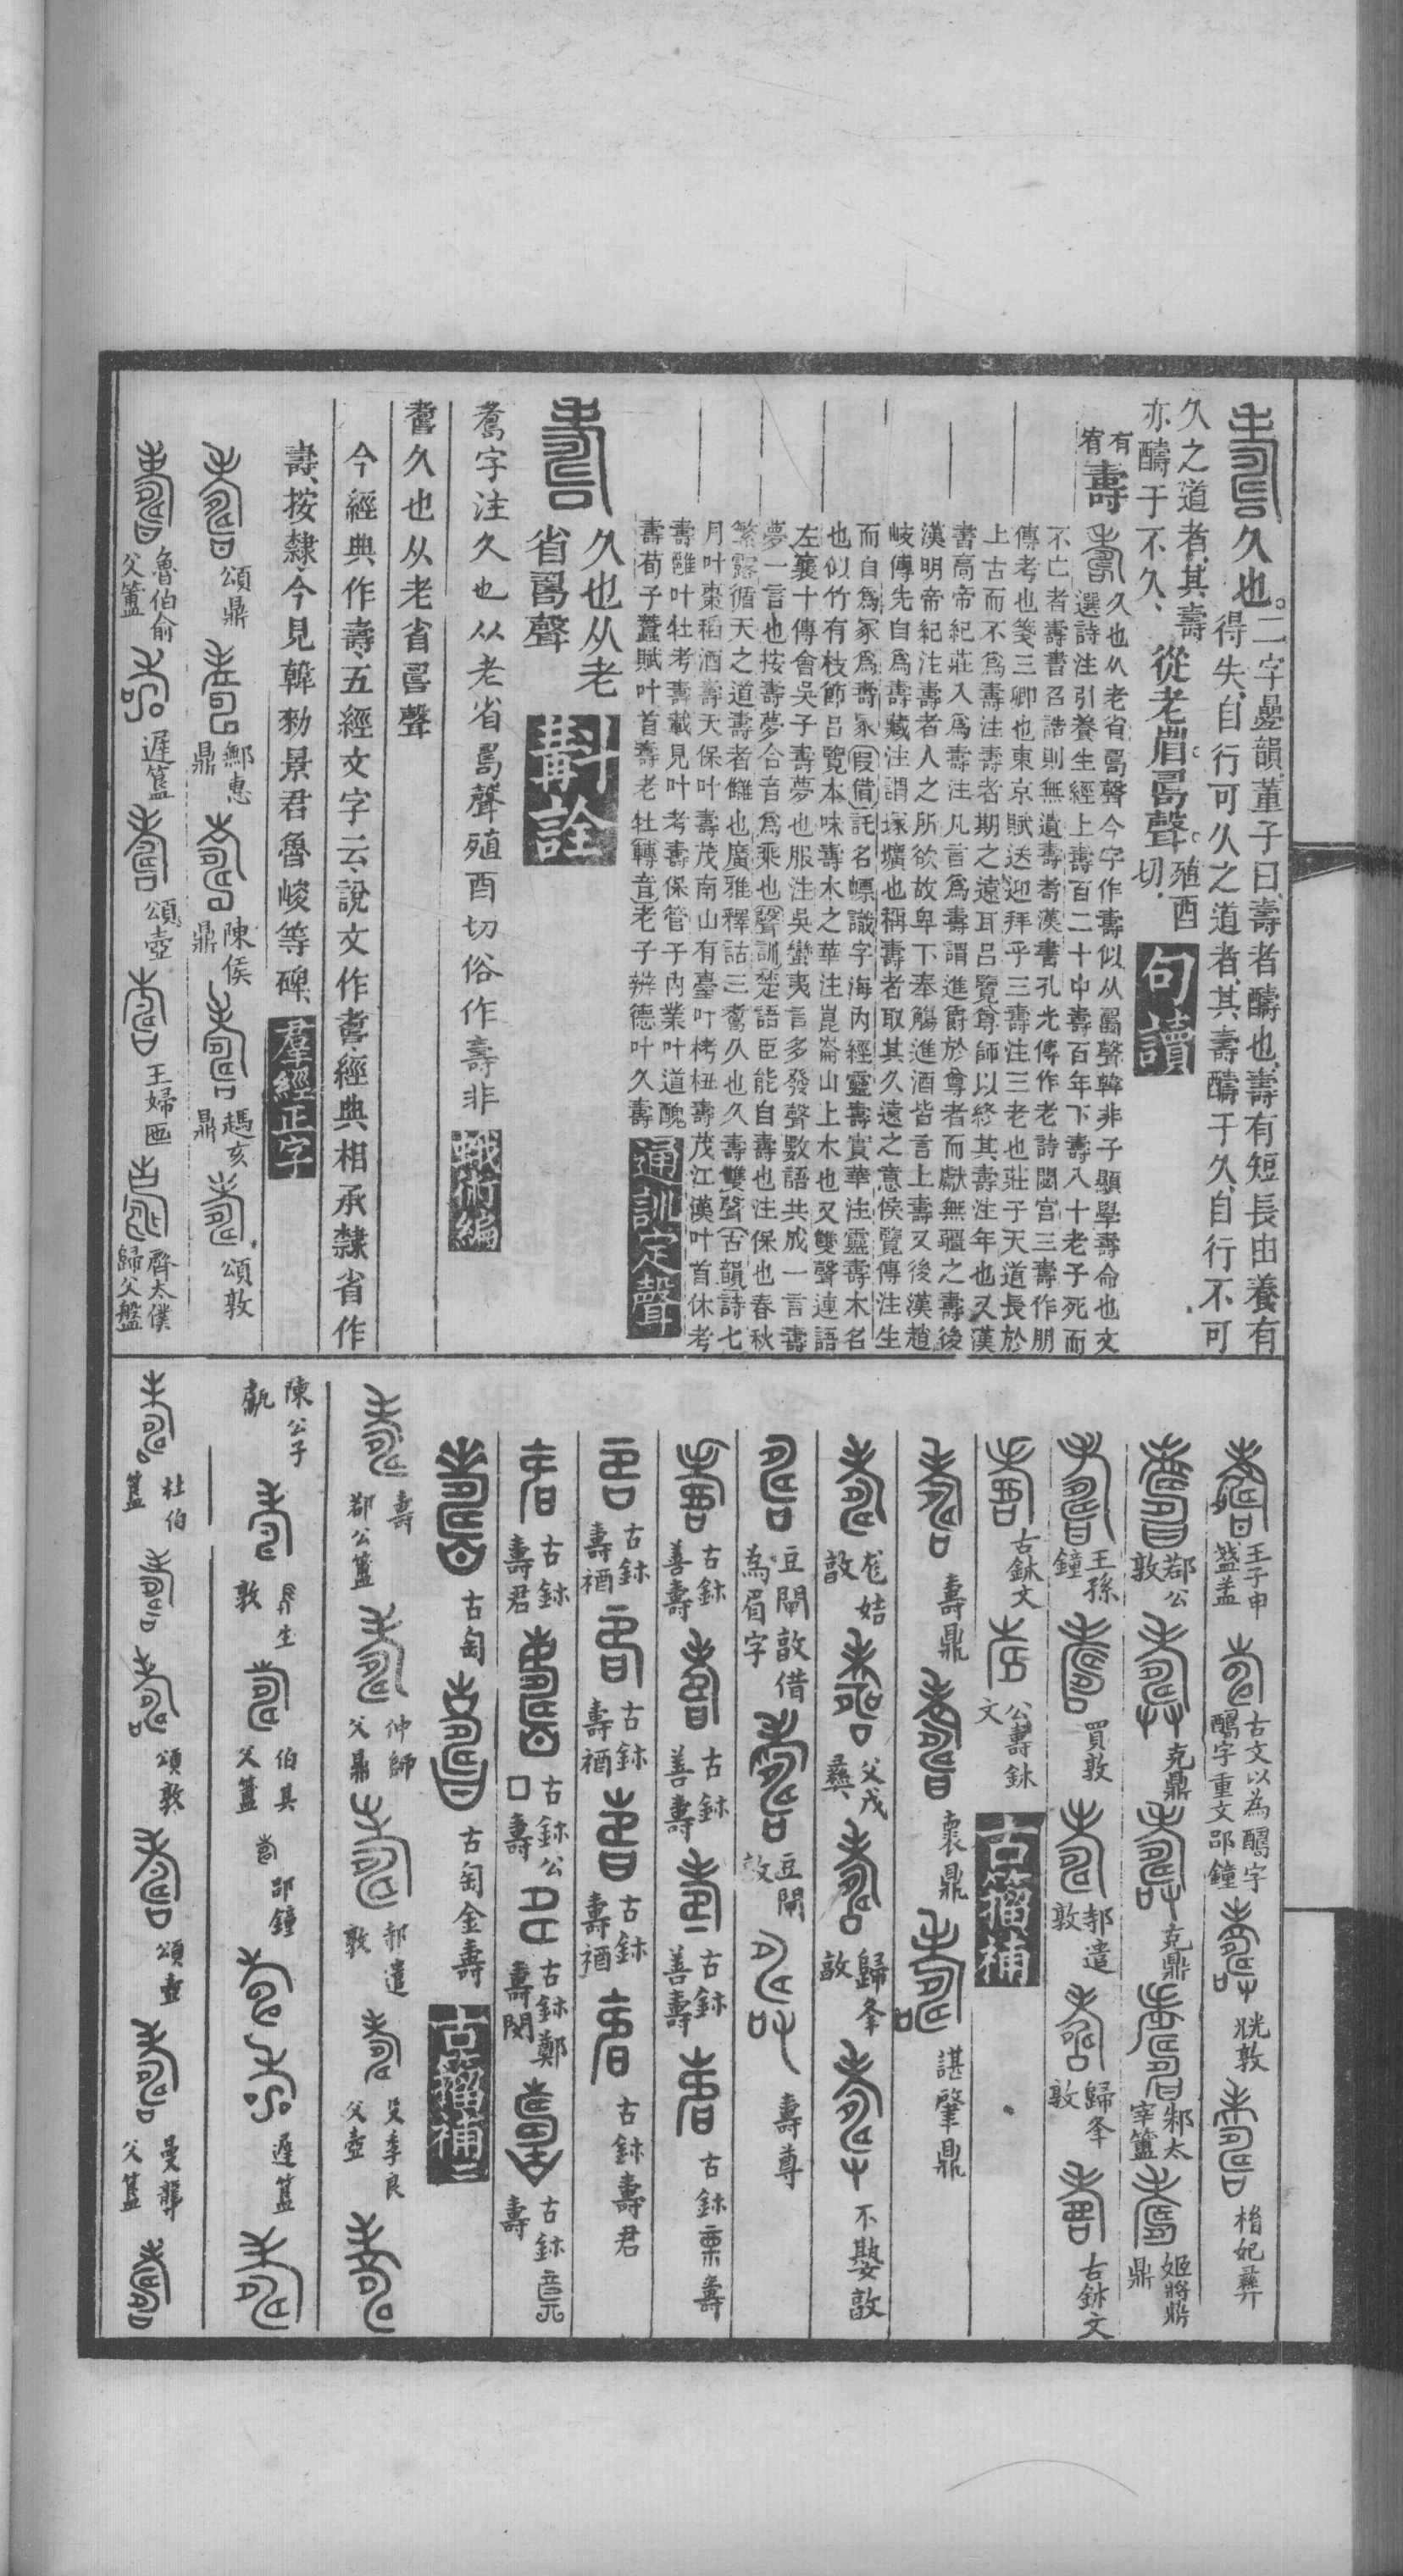 久也。二字疊韻、董子曰、壽者醻也、壽有短長由養有
得失、自行可久之道者、其壽醻于久、自行不可
久之道者、其壽
亦醻于不久、
從老省𠷎聲。殖酉
切、
句讀
有
宥
壽
久也从老省𠷎聲今字作壽似从𠷎聲韓非子顯學壽命也文
選詩注引養生經上壽百二十中壽百年下壽八十老子死而
不亡者壽書召誥則無遺壽耇漢書孔光傳作老詩閟宮三壽作朋
傳考也箋三卿也東京賦送迎拜乎三壽注三老也莊子天道長於
上古而不爲壽注壽者期之遠耳呂覽尊師以終其壽注年也又漢
書高帝紀莊入爲壽注凡言爲壽謂進爵於尊者而獻無疆之壽後
漢明帝紀注壽者人之所欲故卑下奉觴進酒皆言上壽又後漢趙
岐傳先自爲壽藏注謂塚壙也稱壽者取其久遠之意侯覽傳注生
而自爲冢爲壽冢假借託名幖識字海內經靈壽實華注靈壽木名
也似竹有枝節呂覽本味壽木之華注崑崙山上木也又雙聲連語
左襄十傳會吳子壽夢也服注吳蠻夷言多發聲數語共成一言壽
夢一言也按壽夢合音爲乘也聲訓楚語臣能自壽也注保也春秋
繁露循天之道壽者雠也廣雅釋詁三壽久也久壽雙聲古韻詩七
月叶棗稻酒壽天保叶壽茂南山有臺叶栲杻壽茂江漢叶首休考
壽雝叶牡考壽載見叶考壽保管子內業叶道醜
壽荀子蠶賦叶首壽老牡轉音老子辨德叶久壽
通訓定聲
久也从老
省𠷎聲
斠詮
字注久也从老省𠷎聲殖酉切俗作壽非
蛾術編
久也从老省𠷎聲
今經典作壽、五經文字云、說文作、經典相承隸省作
壽、按隸、今見韓勑景君魯峻等碑、
羣經正字
頌鼎
鄦惠
鼎
陳侯
鼎
趞亥
鼎
頌敦
魯伯俞
父簠
遲簋
頌壺
王婦匜
齊太僕
歸父盤
王子申
盞盖
古文以為醻字
醻字重文
郘鐘
敦
妃彝
郜公
敦
克鼎
克鼎
邾太
宰簠
姬將鼎
鼎
王孫
鐘
買敦
郝遣
敦
歸夆
敦
古鉥文
古鉥文
公壽鉥
文
古籀補
壽鼎
鼎
諶肇鼎
姞
敦
父戊
彝
歸夆
敦
不𡢁敦
豆閉敦借
為眉字
豆閉
敦
壽尊
古鉥
善壽
古鉥
善壽
古鉥
善壽
古鉥栗壽
古鉥
壽
古鉥
壽
古鉥
壽
古鉥壽君
古鉥
壽君
古鉥公
口壽
古鉥鄭
壽閔
古鉥
壽
古匋
古匋金壽
古籀補補
壽
郜公簋
仲師
父鼎
郝遣
敦
季良
父壺
陳公子
甗
生
敦
伯其
父簠
郘鐘
遲簋
杜伯
簋
頌敦
頌壺
曼龏
父簋